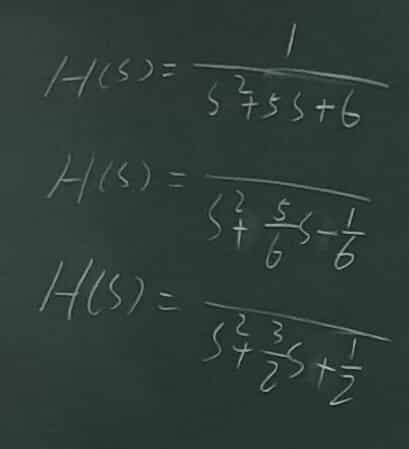 H(s) = 1 / (s² + 5s + 6)
H(s) = / (s² + 5/6 s - 1/6)
H(s) = / (s² + 3/2 s + 1/2)